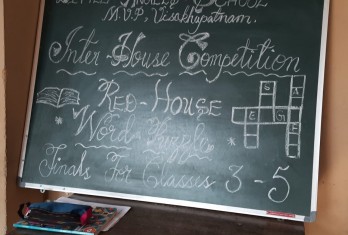 Little Angels School
M.V.P, Visakhapatnam.
Inter-House Competition
Red-House
Word Puzzle
Finals For Classes 3-5